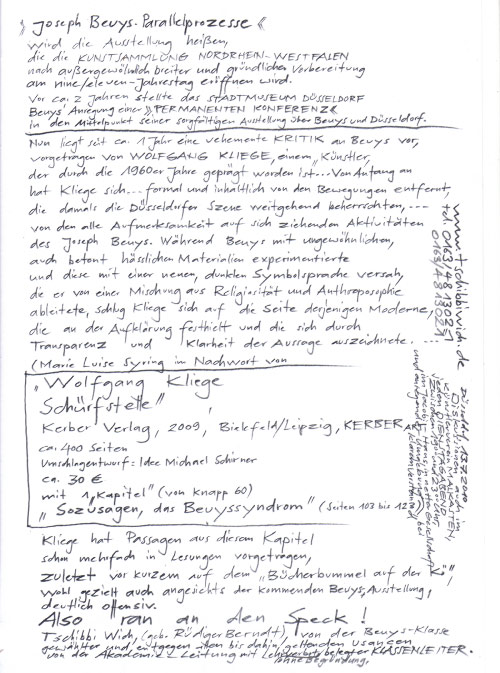 》Joseph Beuys. Parallelprozesse《
wird die Ausstellung heißen,
die die KUNSTSAMMLUNG NORDRHEIN-WESTFALEN
nach außergewöhnlich breiter und gründlicher Vorbereitung
am nine/eleven-Jahrestag eröffnen wird.
Vor ca. 2 Jahren stellte das STADTMUSEUM DÜSSELDORF
Beuys' Anregung einer "PERMANENTEN KONFERENZ"
in den Mittelpunkt seiner sorgfältigen Ausstellung über Beuys und Düsseldorf.
Nun liegt seit ca. 1 Jahr eine vehemente KRITIK an Beuys vor,
vorgetragen von WOLFGANG KLIEGE, einem "Künstler,
der durch die 1960er Jahre geprägt worden ist... Von Anfang an
hat Kliege sich... formal und inhaltlich von den Bewegungen entfernt,
die damals die Düsseldorfer Szene weitgehend beherrschten, ---
von den alle Aufmerksamkeit auf sich ziehenden Aktivitäten
des Joseph Beuys. Während Beuys mit ungewöhnlichen,
auch betont hässlichen Materialien experimentierte
und diese mit einer neuen, dunklen Symbolsprache versah,
die er von einer Mischung aus Religiosität und Anthroposophie
ableitete, schlug Kliege sich auf die Seite derjenigen Moderne,
die an der Aufklärung festhielt und die sich durch
Transparenz und Klarheit der Aussage auszeichnete. ---
(Marie Luise Syring in Nachwort von
"Wolfgang Kliege
Schürfstelle"
Kerber Verlag, 2009, Bielefeld/Leipzig, KERBER
ca. 400 Seiten
Umschlagentwurf: Idee Michael Schirner
ca. 30 €
mit 1 "Kapitel" (von knapp 60)
"Sozusagen, das Beuyssyndrom" (Seiten 103 bis
Kliege hat Passagen aus diesem Kapitel
schon mehrfach in Lesungen vorgetragen,
zuletzt vor kurzem auf dem "Bücherbummel auf der Kö",
wohl gezielt auch angesichts der kommenden Beuys-Ausstellung,
deutlich offensiv.
Also ran an den Speck!
Tschibbi Wich, (geb. Rüdiger Berndt), von der Beuys-Klasse
gewählter und entgegen allen bis dahin geltenden Usancen
von der Akademie-Leitung mit Lehrverbot belegter KLASSENLEITER.
ohne Begründung,
www.tschibbiwich.de
Düsseldorf,
Diskussionen auch im
Künstlerverein MALKASTEN,
jeden DIENSTAGABEND